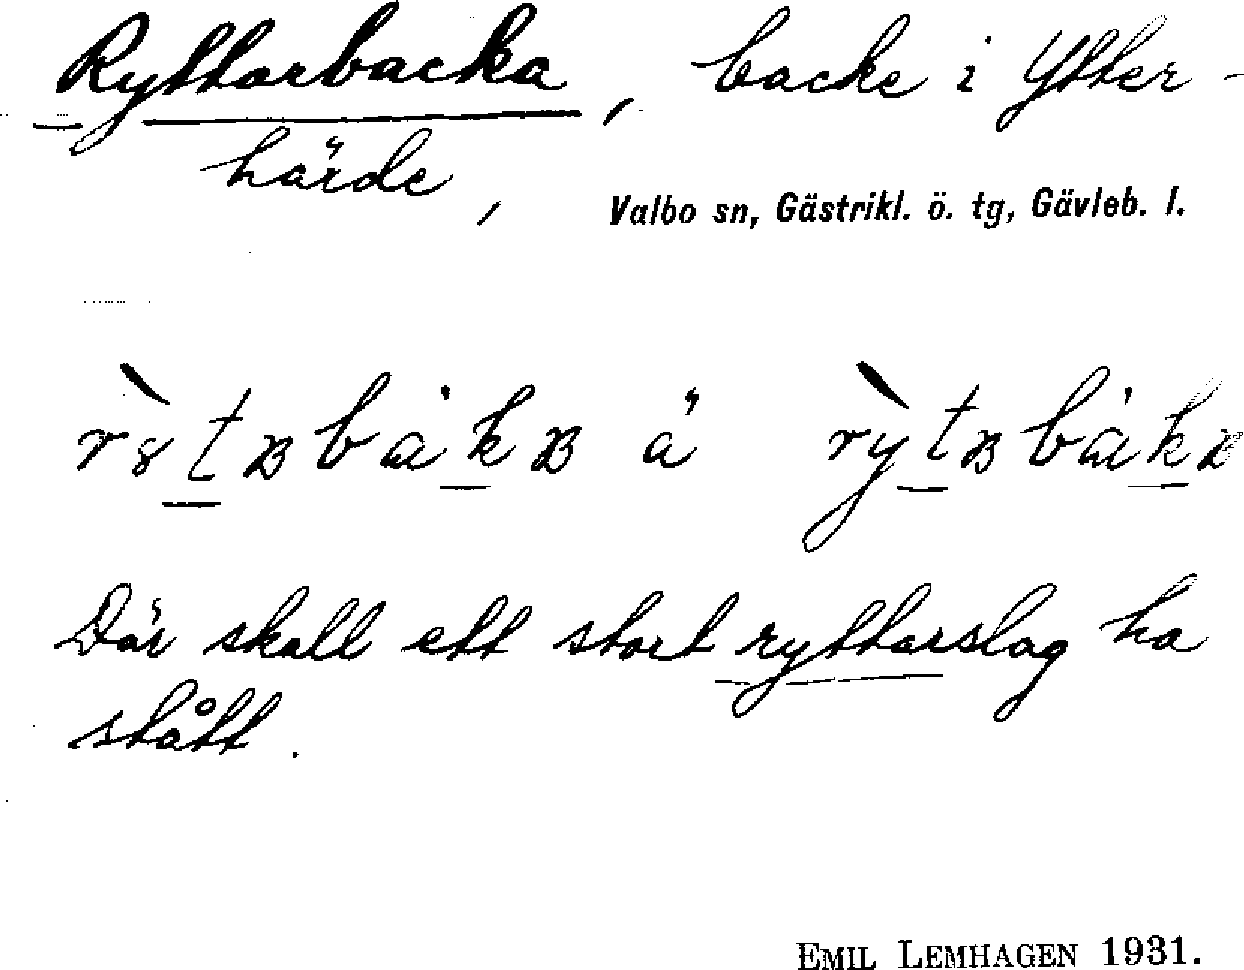 Ryttarbacka, backe i Ytter-
härde,
Valbo sn, Gästrikl. ö. tg, Gävleb. l.
ä
Där skall ett stort ryttarslag ha
stått.
EMIL LEMHAGEN 1931.